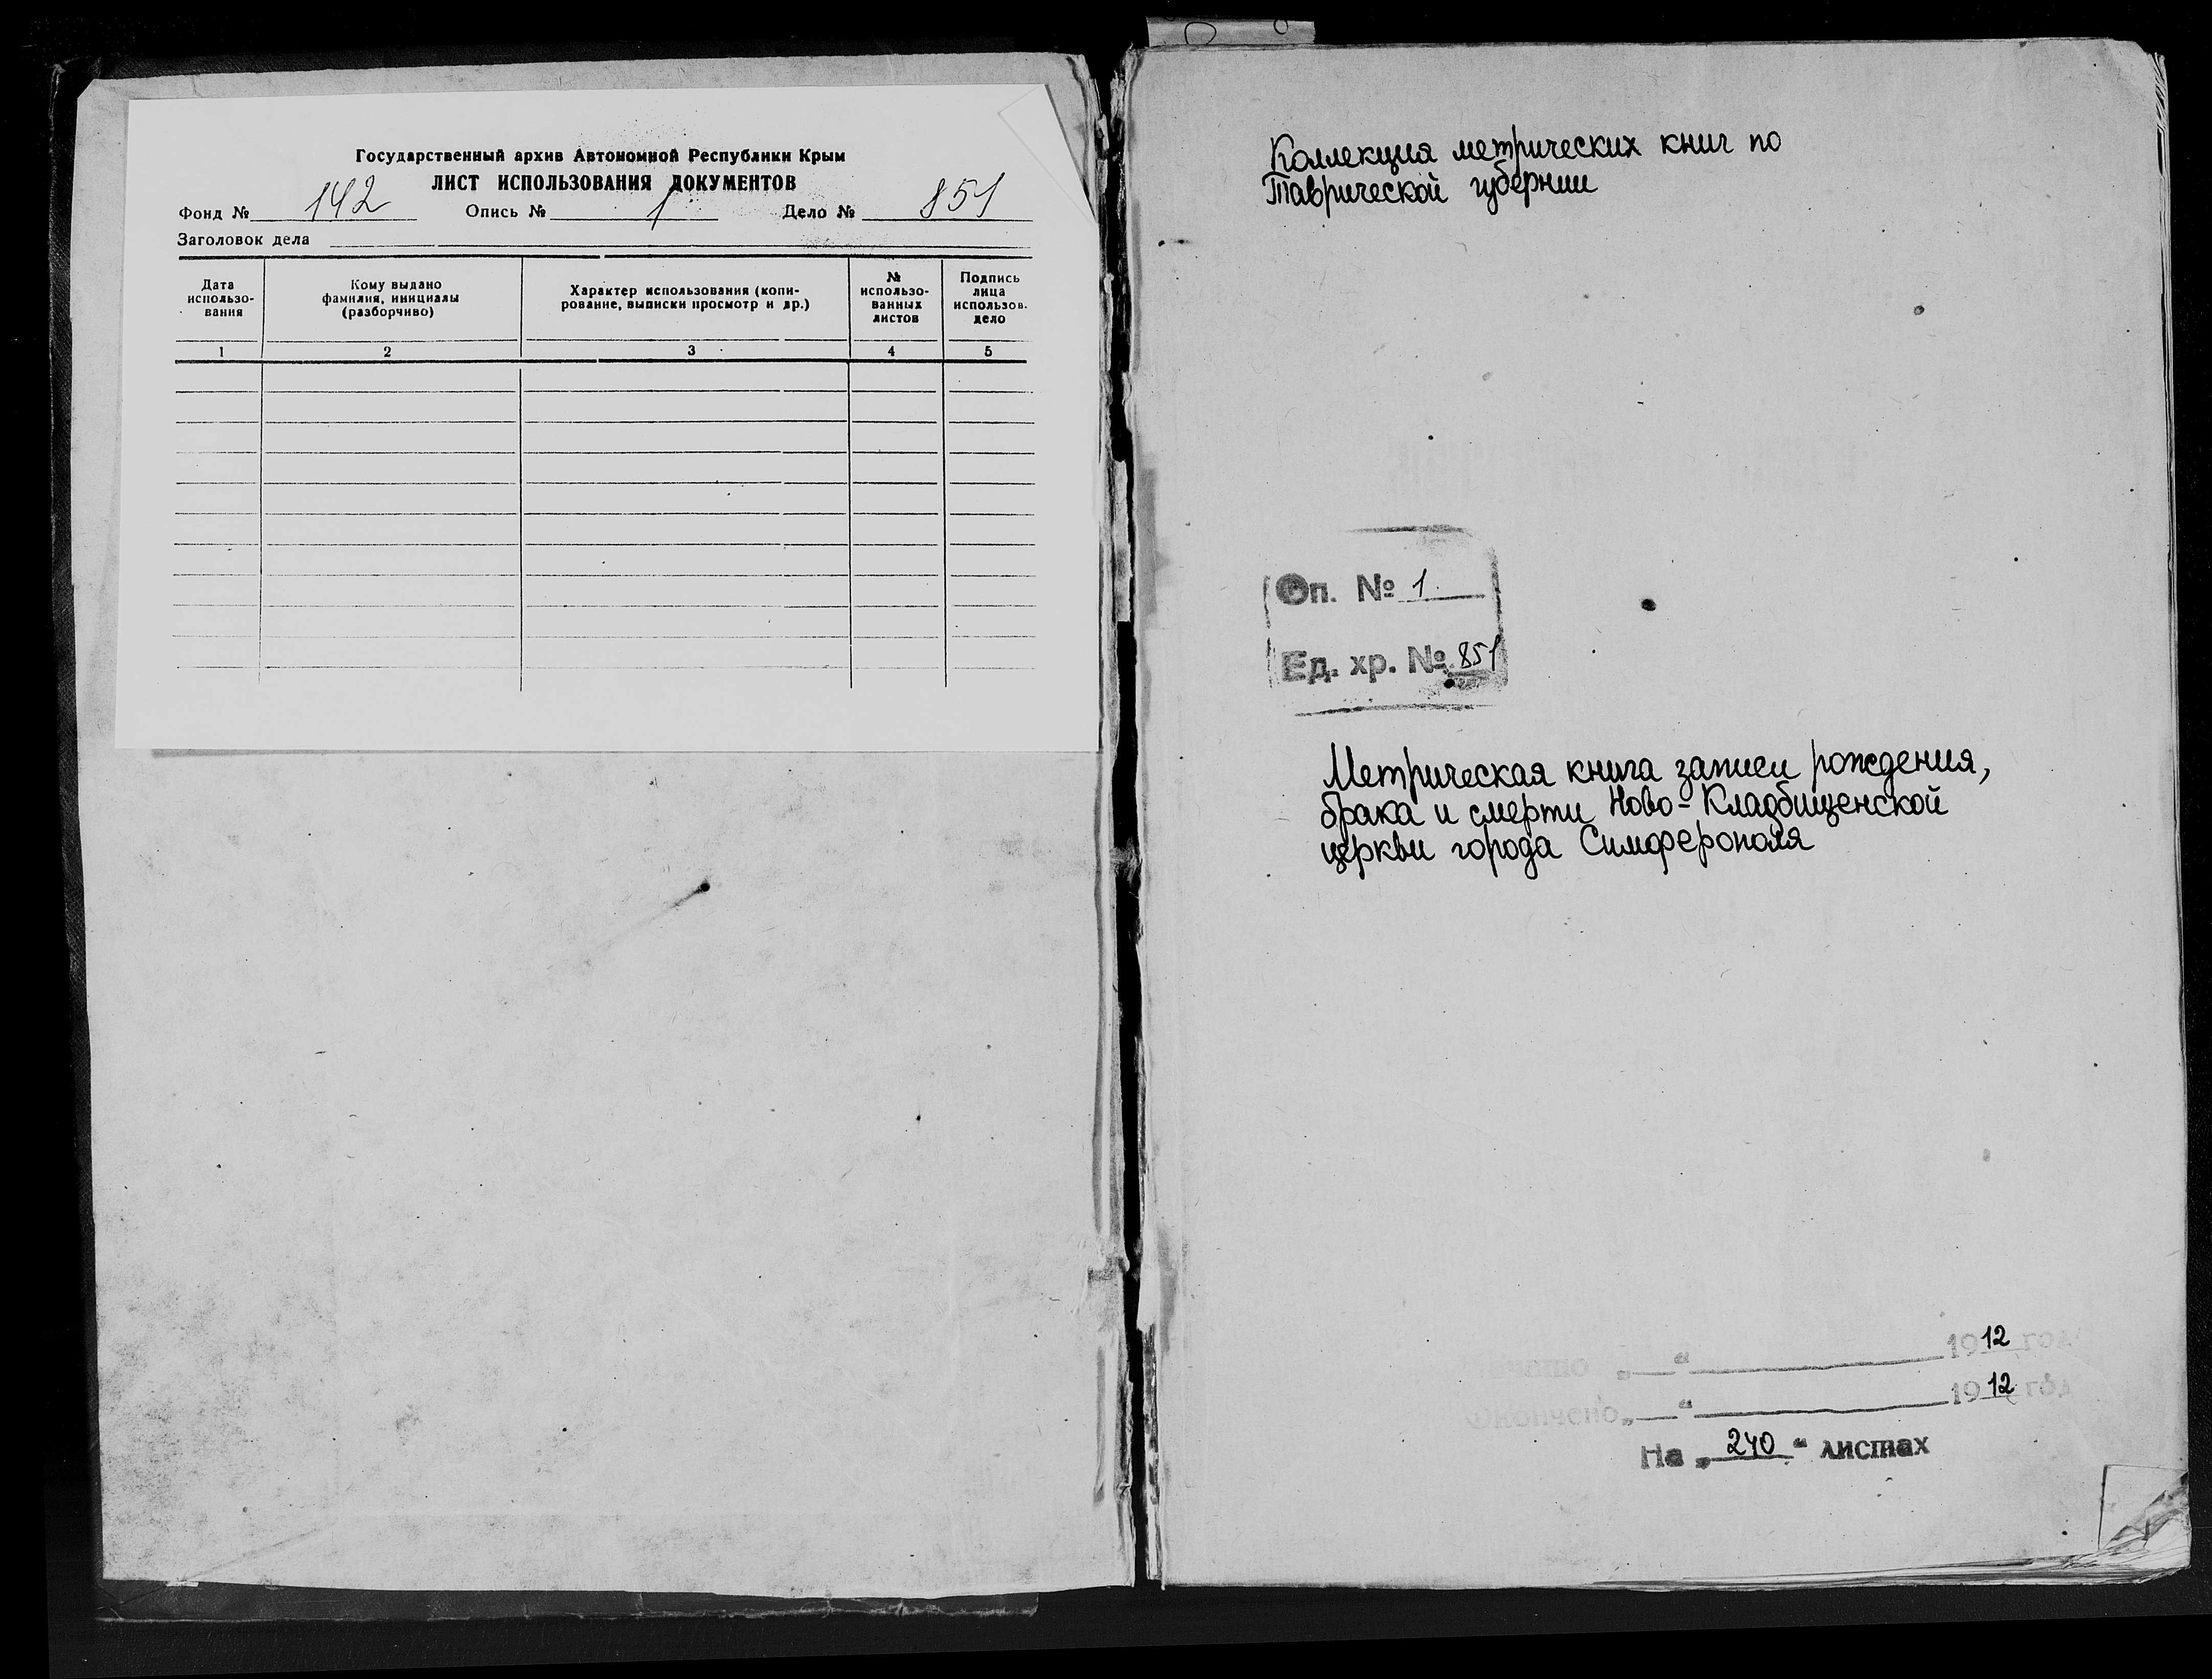 Государственный архив Автономной Республики Крым
ЛИСТ ИСПОЛЬЗОВАНИЯ ДОКУМЕНТОВ
Фонд № 142 Опись № 1 Дело № 851
Заголовок дела
Дата использо-вания
Кому выдано фамилия, инициалы (разборчиво)
Характер использования (копи-рование, выписки просмотр и др.)
№ использо-ванных листов
Подпись лица использов. дело
1 2 3 4 5
Коллекция метрических книг по
Таврической губернии
Оп. № 1
Ед. хр. № 851
Метрическая книга записи рождения,
брака и смерти Ново-Кладбищенской
церкви города Симферополя
„ “ 1912 год
Окончено „ “ 1912 год
На „240“ листах